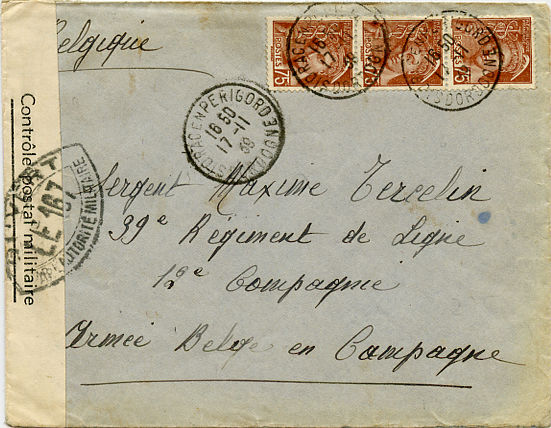 Belgique
POSTES 75
75
75
16 50
17 -11
39
DORDOGNE
Contrôle postal militaire
OUVERT
PAR AUTORITÉ MILITAIRE
LE 167
Sergent Maxime Tercelin
39e Régiment de Ligne
12e Compagnie
Armée Belge en Campagne